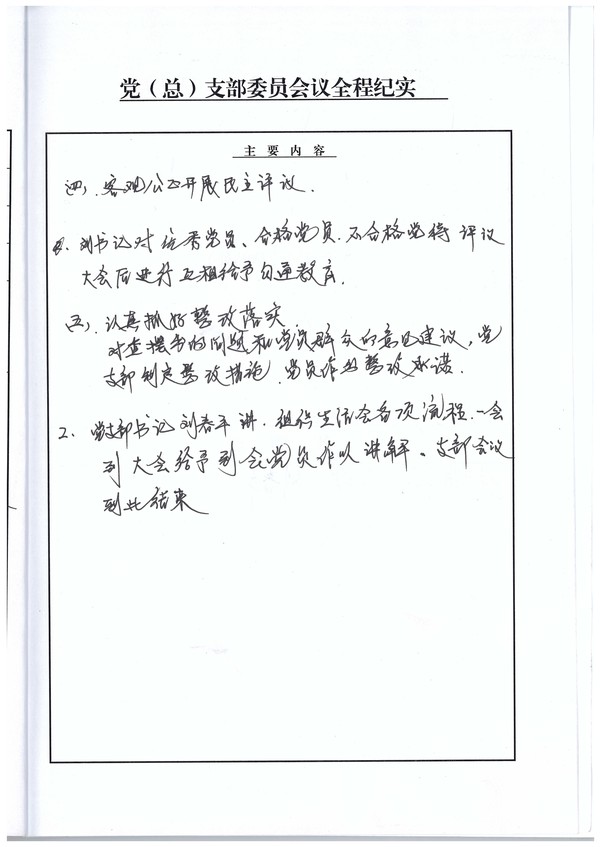 党（总）支部委员会议全程纪实
主要内容
四、客观公正开展民主评议.
刘书记对优秀党员、合格党员.不合格党员 评议
大会后进行 给予 教育.
五、认真抓好整改落实.
对查摆出的问题和党员群众的意见建议，党
支部制定整改措施.党员作出整改承诺.
2、党支部书记刘春平讲.组织生活会各项流程.一会
到大会给予到会党员作以讲解、支部会议
到此结束